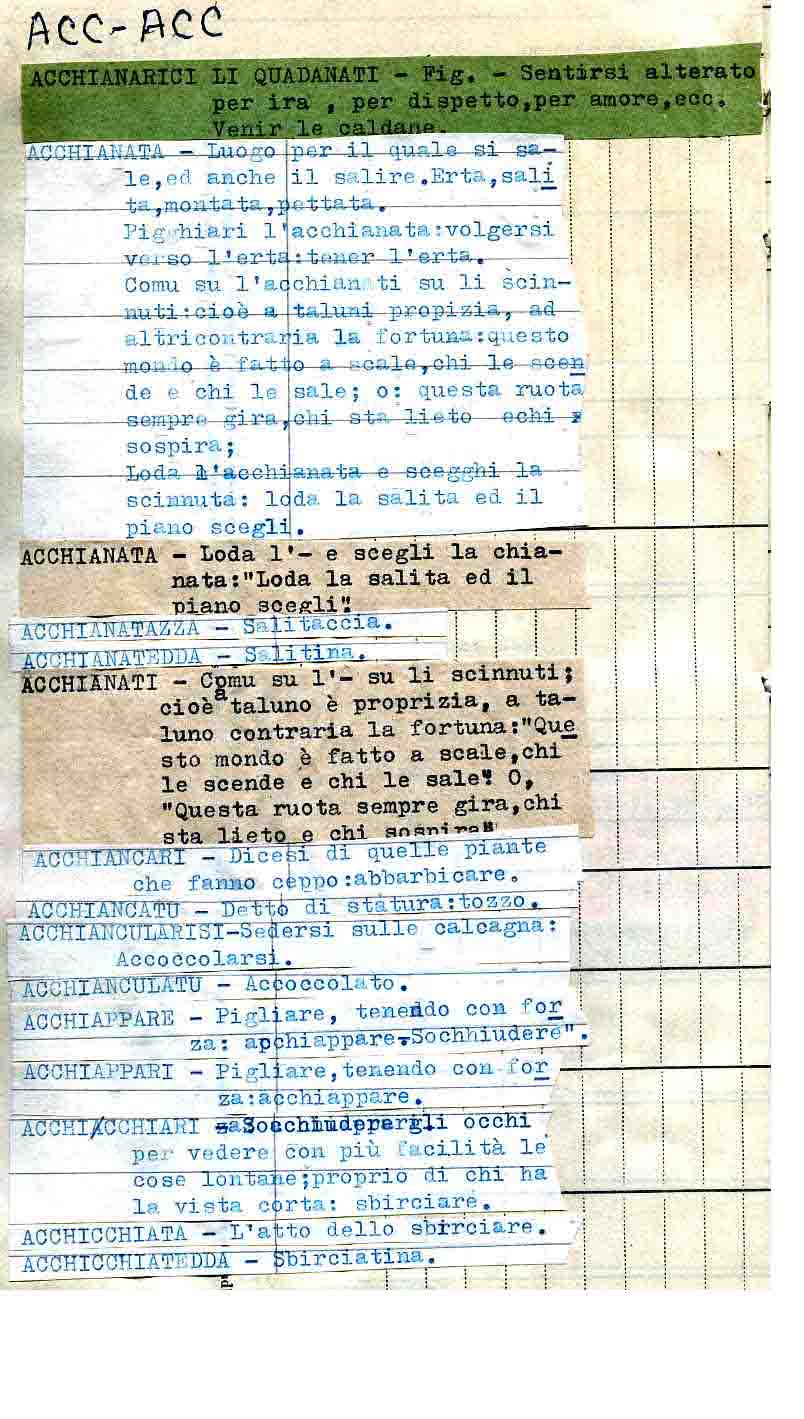 ACC-ACC
ACCHIANARICI LI QUADANATI - Fig. - Sentirsi alterato
per ira , per dispetto,per amore,ecc.
Venir le caldane.
ACCHIANATA - Luogo per il quale si sa-
le,ed anche il salire.Erta,sali
ta,montata,pettata.
Pigghiari l'acchianata:volgersi
verso l'erta:tener l'erta.
Comu su l'acchianati su li scin-
nuti:cioè a taluni propizia, ad
altricontraria la fortuna:questo
mondo è fatto a scale,chi le scen
de e chi le sale; o: questa ruota
sempre gira,chi sta lieto echi
sospira;
Loda l'acchianata e scegghi la
scinnuta: loda la salita ed il
piano scegli.
ACCHIANATA - Loda l'- e scegli la chia-
nata:"Loda la salita ed il
piano scegli".
ACCHIANATAZZA - Salitaccia.
ACCHIANATEDDA - Salitina.
ACCHIANATI - Comu su l'- su li scinnuti;
cioè a taluno è proprizia, a ta-
luno contraria la fortuna:"Que
sto mondo è fatto a scale,chi
le scende e chi le sale". O,
"Questa ruota sempre gira,chi
sta lieto e chi sospira"
ACCHIANCARI - Dicesi di quelle piante
che fanno ceppo:abbarbicare.
ACCHIANCATU - Detto di statura:tozzo.
ACCHIANCULARISI-Sedersi sulle calcagna:
Accoccolarsi.
ACCHIANCULATU - Accoccolato.
ACCHIAPPARE - Pigliare, tenendo con for
za: apchiappare-Sochhiudere".
ACCHIAPPARI - Pigliare,tenendo con for
za:acchiappare.
ACCHI/CCHIARI gli occhi
per vedere con più facilità le
cose lontane;proprio di chi ha
la vista corta: sbirciare.
ACCHICCHIATA - L'atto dello sbirciare.
ACCHICCHIATEDDA - Sbirciatina.